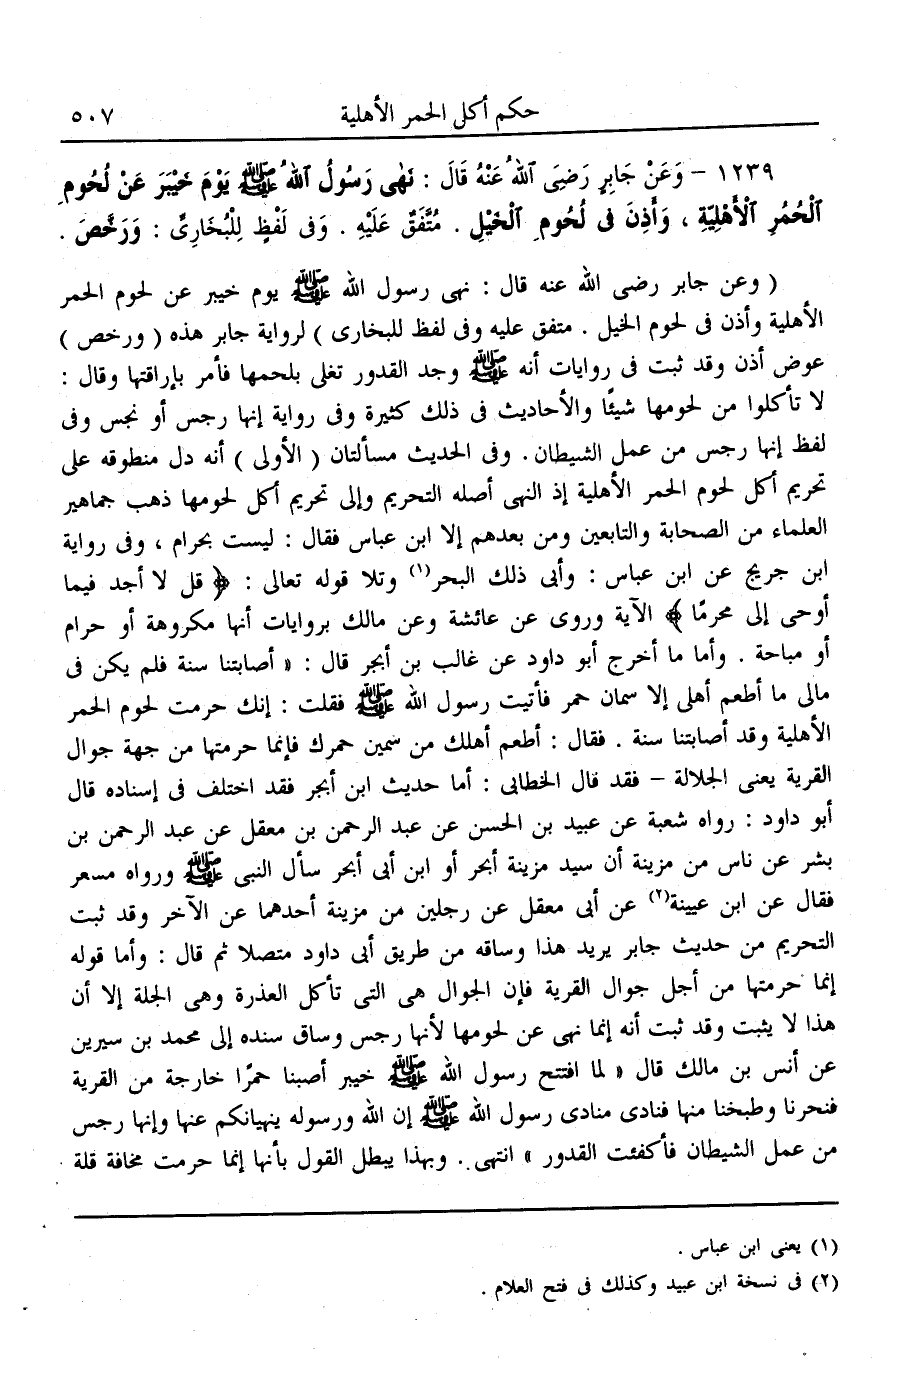 حكم أكل الحمر الأهلية ٥٠٧
١٢٣٩ - وَعَنْ جَابِرٍ رَضِىَ ٱللهُ عَنْهُ قَالَ : نَهٰى رَسُولُ ٱللهُ ﷺ يَوْمَ خَيْبَرَ عَنْ لُحُومِ
ٱلْحُمُرِ ٱلْأَهْلِيَّةِ ، وَأَذِنَ فِى لُحُومِ ٱلْخَيْلِ . مُتَّفَقٌ عَلَيْهِ . وَفِى لَفْظٍ لِلْبُخَارِىِّ : وَرَخَّصَ .
( وعن جابر رضى الله عنه قال : نهى رسول الله ﷺ يوم خيبر عن لحوم الحمر
الأهلية وأذن فى لحوم الخيل . متفق عليه وفى لفظ للبخارى ) لرواية جابر هذه ( ورخص )
عوض أذن وقد ثبت فى روايات أنه ﷺ وجد القدور تغلى بلحمها فأمر بإراقتها وقال :
لا تأكلوا من لحومها شيئًا والأحاديث فى ذلك كثيرة وفى رواية إنها رجس أو نجس وفى
لفظ إنها رجس من عمل الشيطان . وفى الحديث مسألتان ( الأولى ) أنه دل منطوقه على
تحريم أكل لحوم الحمر الأهلية إذ النهى أصله التحريم وإلى تحريم أكل لحومها ذهب جماهير
العلماء من الصحابة والتابعين ومن بعدهم إلا ابن عباس فقال : ليست بحرام ، وفى رواية
ابن جريج عن ابن عباس : وأبى ذلك البحر(١) وتلا قوله تعالى : ﴿ قل لا أجد فيما
أوحى إلى محرمًا ﴾ الآية وروى عن عائشة وعن مالك بروايات أنها مكروهة أو حرام
أو مباحة . وأما ما أخرج أبو داود عن غالب بن أبجر قال : « أصابتنا سنة فلم يكن فى
مالى ما أطعم أهلى إلا سمان حمر فأتيت رسول الله ﷺ فقلت : إنك حرمت لحوم الحمر
الأهلية وقد أصابتنا سنة . فقال : أطعم أهلك من سمين حمرك فإنما حرمتها من جهة جوال
القرية يعنى الجلالة - فقد قال الخطابى : أما حديث ابن أبجر فقد اختلف فى إسناده قال
أبو داود : رواه شعبة عن عبيد بن الحسن عن عبد الرحمن بن معقل عن عبد الرحمن بن
بشر عن ناس من مزينة أن سيد مزينة أبجر أو ابن أبى أبجر سأل النبى ﷺ ورواه مسعر
فقال عن ابن عيينة(٢) عن أبى معقل عن رجلين من مزينة أحدهما عن الآخر وقد ثبت
التحريم من حديث جابر يريد هذا وساقه من طريق أبى داود متصلا ثم قال : وأما قوله
إنما حرمتها من أجل جوال القرية فإن الجوال هى التى تأكل العذرة وهى الجلة إلا أن
هذا لا يثبت وقد ثبت أنه إنما نهى عن لحومها لأنها رجس وساق سنده إلى محمد بن سيرين
عن أنس بن مالك قال « لما افتتح رسول الله ﷺ خيبر أصبنا حمرًا خارجة من القرية
فنحرنا وطبخنا منها فنادى منادى رسول الله ﷺ إن الله ورسوله ينهيانكم عنها وإنها رجس
من عمل الشيطان فأكفئت القدور » انتهى . وبهذا يبطل القول بأنها إنما حرمت مخافة قلة
(١) يعنى ابن عباس .
(٢) فى نسخة ابن عبيد وكذلك فى فتح العلام .